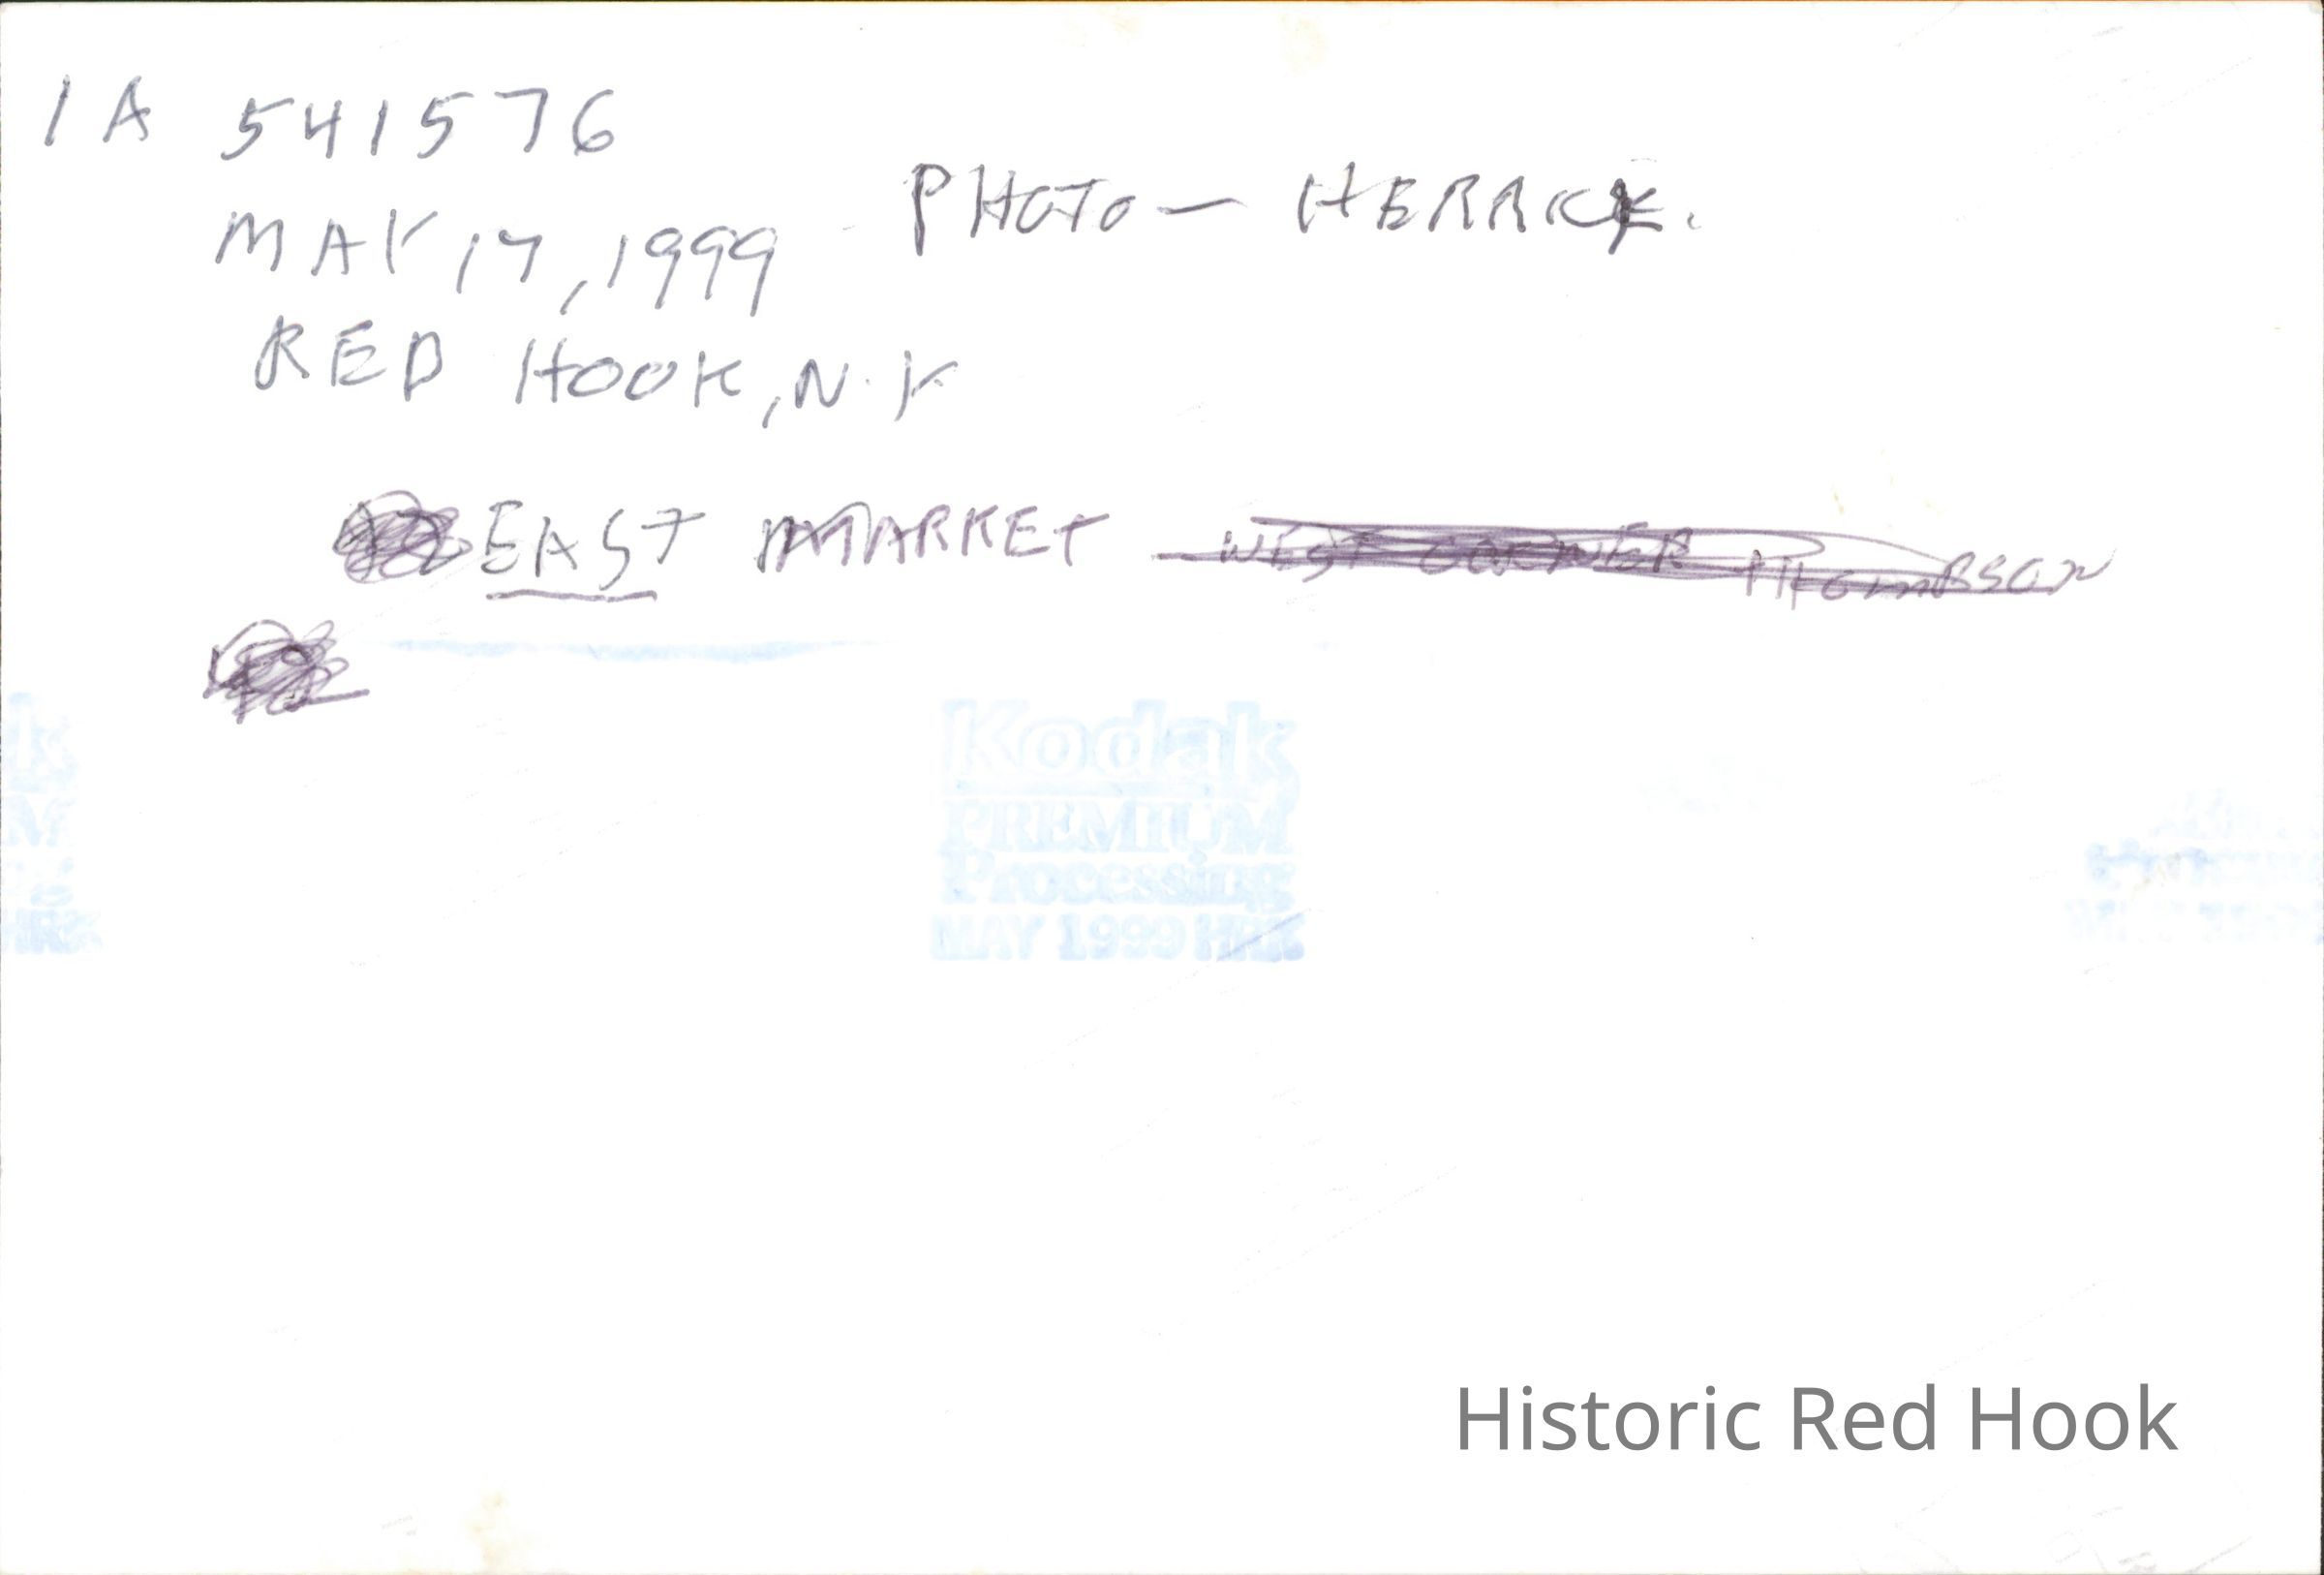 1A 541576
MAY 17, 1999
PHOTO - HERRICK.
RED HOOK, N.Y
EAST MARKET WEST CORNER THOMPSON
Kodak
PREMIUM
Processing
MAY 1999 HRK
Historic Red Hook